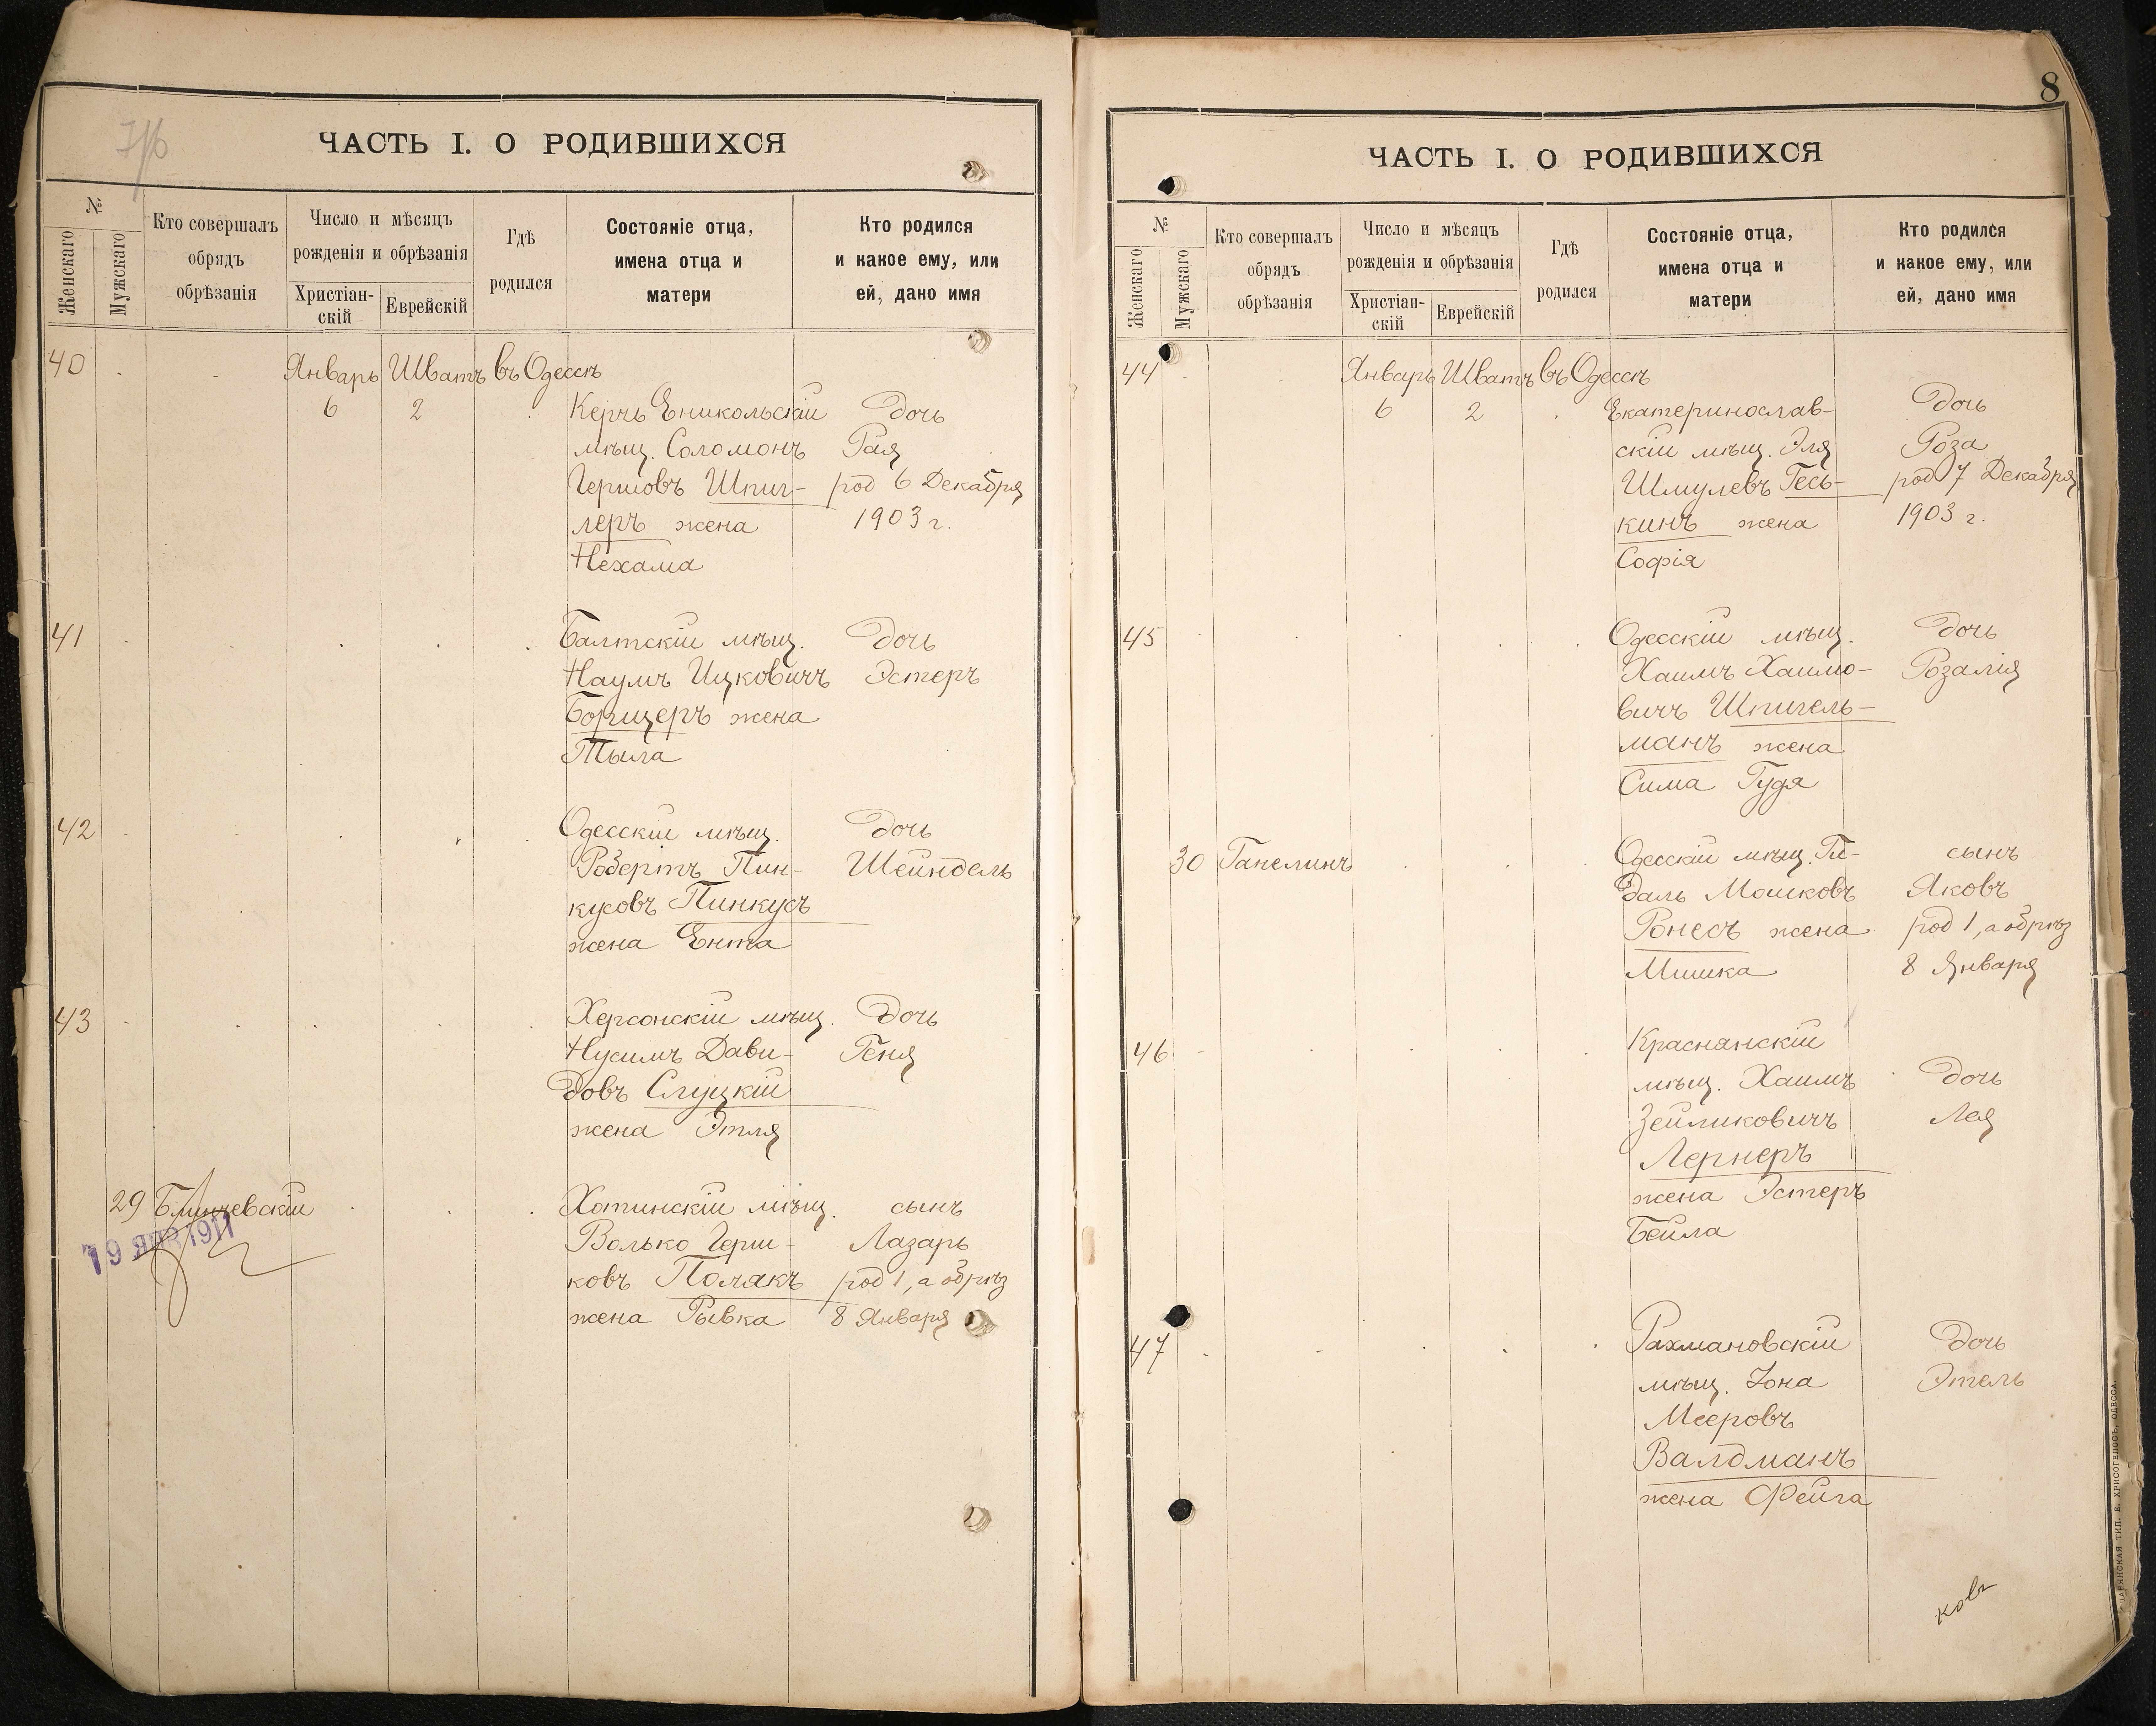 ЧАСТЬ I. О РОДИВШИХСЯ
№
Женскаго
Мужскаго
Кто совершалъ
обрядъ
обрѣзанія
Число и мѣсяцъ
рожденія и обрѣзанія
Христіан-
скій
Еврейскій
Гдѣ
родился
Состояніе отца,
имена отца и
матери
Кто родился
и какое ему, или
ей, дано имя
40 Январь Шватъ въ Одессѣ
6 2 Керчь Еникольскій Дочь
мѣщ. Соломонъ Рая
Гершовъ Шпиг- род 6 Декабря
леръ жена 1903 г.
Нехама
41 Балтскій мѣщ. Дочь
Наумъ Ицковичъ Эстеръ
Борщеръ жена
Тыла
42 Одесскій мѣщ. Дочь
Робертъ Пин- Шейндель
кусовъ Пинкусъ
жена Ента
43 Херсонскій мѣщ. Дочь
Нусимъ Дави- Геня
довъ Слуцкій
жена Этля
29 Хотинскій мѣщ. сынъ
19 ЯНВ 1911
Волько Герш- Лазарь
ковъ Полякъ род 1, а обрѣз
жена Рывка 8 Января
8
ЧАСТЬ I. О РОДИВШИХСЯ
№
Женскаго
Мужскаго
Кто совершалъ
обрядъ
обрѣзанія
Число и мѣсяцъ
рожденія и обрѣзанія
Христіан-
скій
Еврейскій
Гдѣ
родился
Состояніе отца,
имена отца и
матери
Кто родился
и какое ему, или
ей, дано имя
44 Январь Шватъ въ Одессѣ
6 2 Екатеринослав- Дочь
скій мѣщ. Эля Роза
Шмулевъ Гесь- род 7 Декабря
кинъ жена 1903 г.
Софія
45 Одесскій мѣщ. Дочь
Хаимъ Хаимо- Розалія
вичъ Шпигель-
манъ жена
Сима Гудя
30 Ганелинъ Одесскій мѣщ. Ги- сынъ
даль Мошковъ Яковъ
Ронесъ жена род 1, а обрѣз
Мишка 8 Января
46 Краснянскій
мѣщ. Хаимъ Дочь
Зейликовичъ Лая
Лернеръ
жена Эстеръ
Бейла
47 Рахмановскій Дочь
мѣщ. Іона Этель
Мееровъ
Валдманъ
жена Фейга
ковъ
ТИП. Е. ХРИСОГЕЛОСЪ, ОДЕССА.